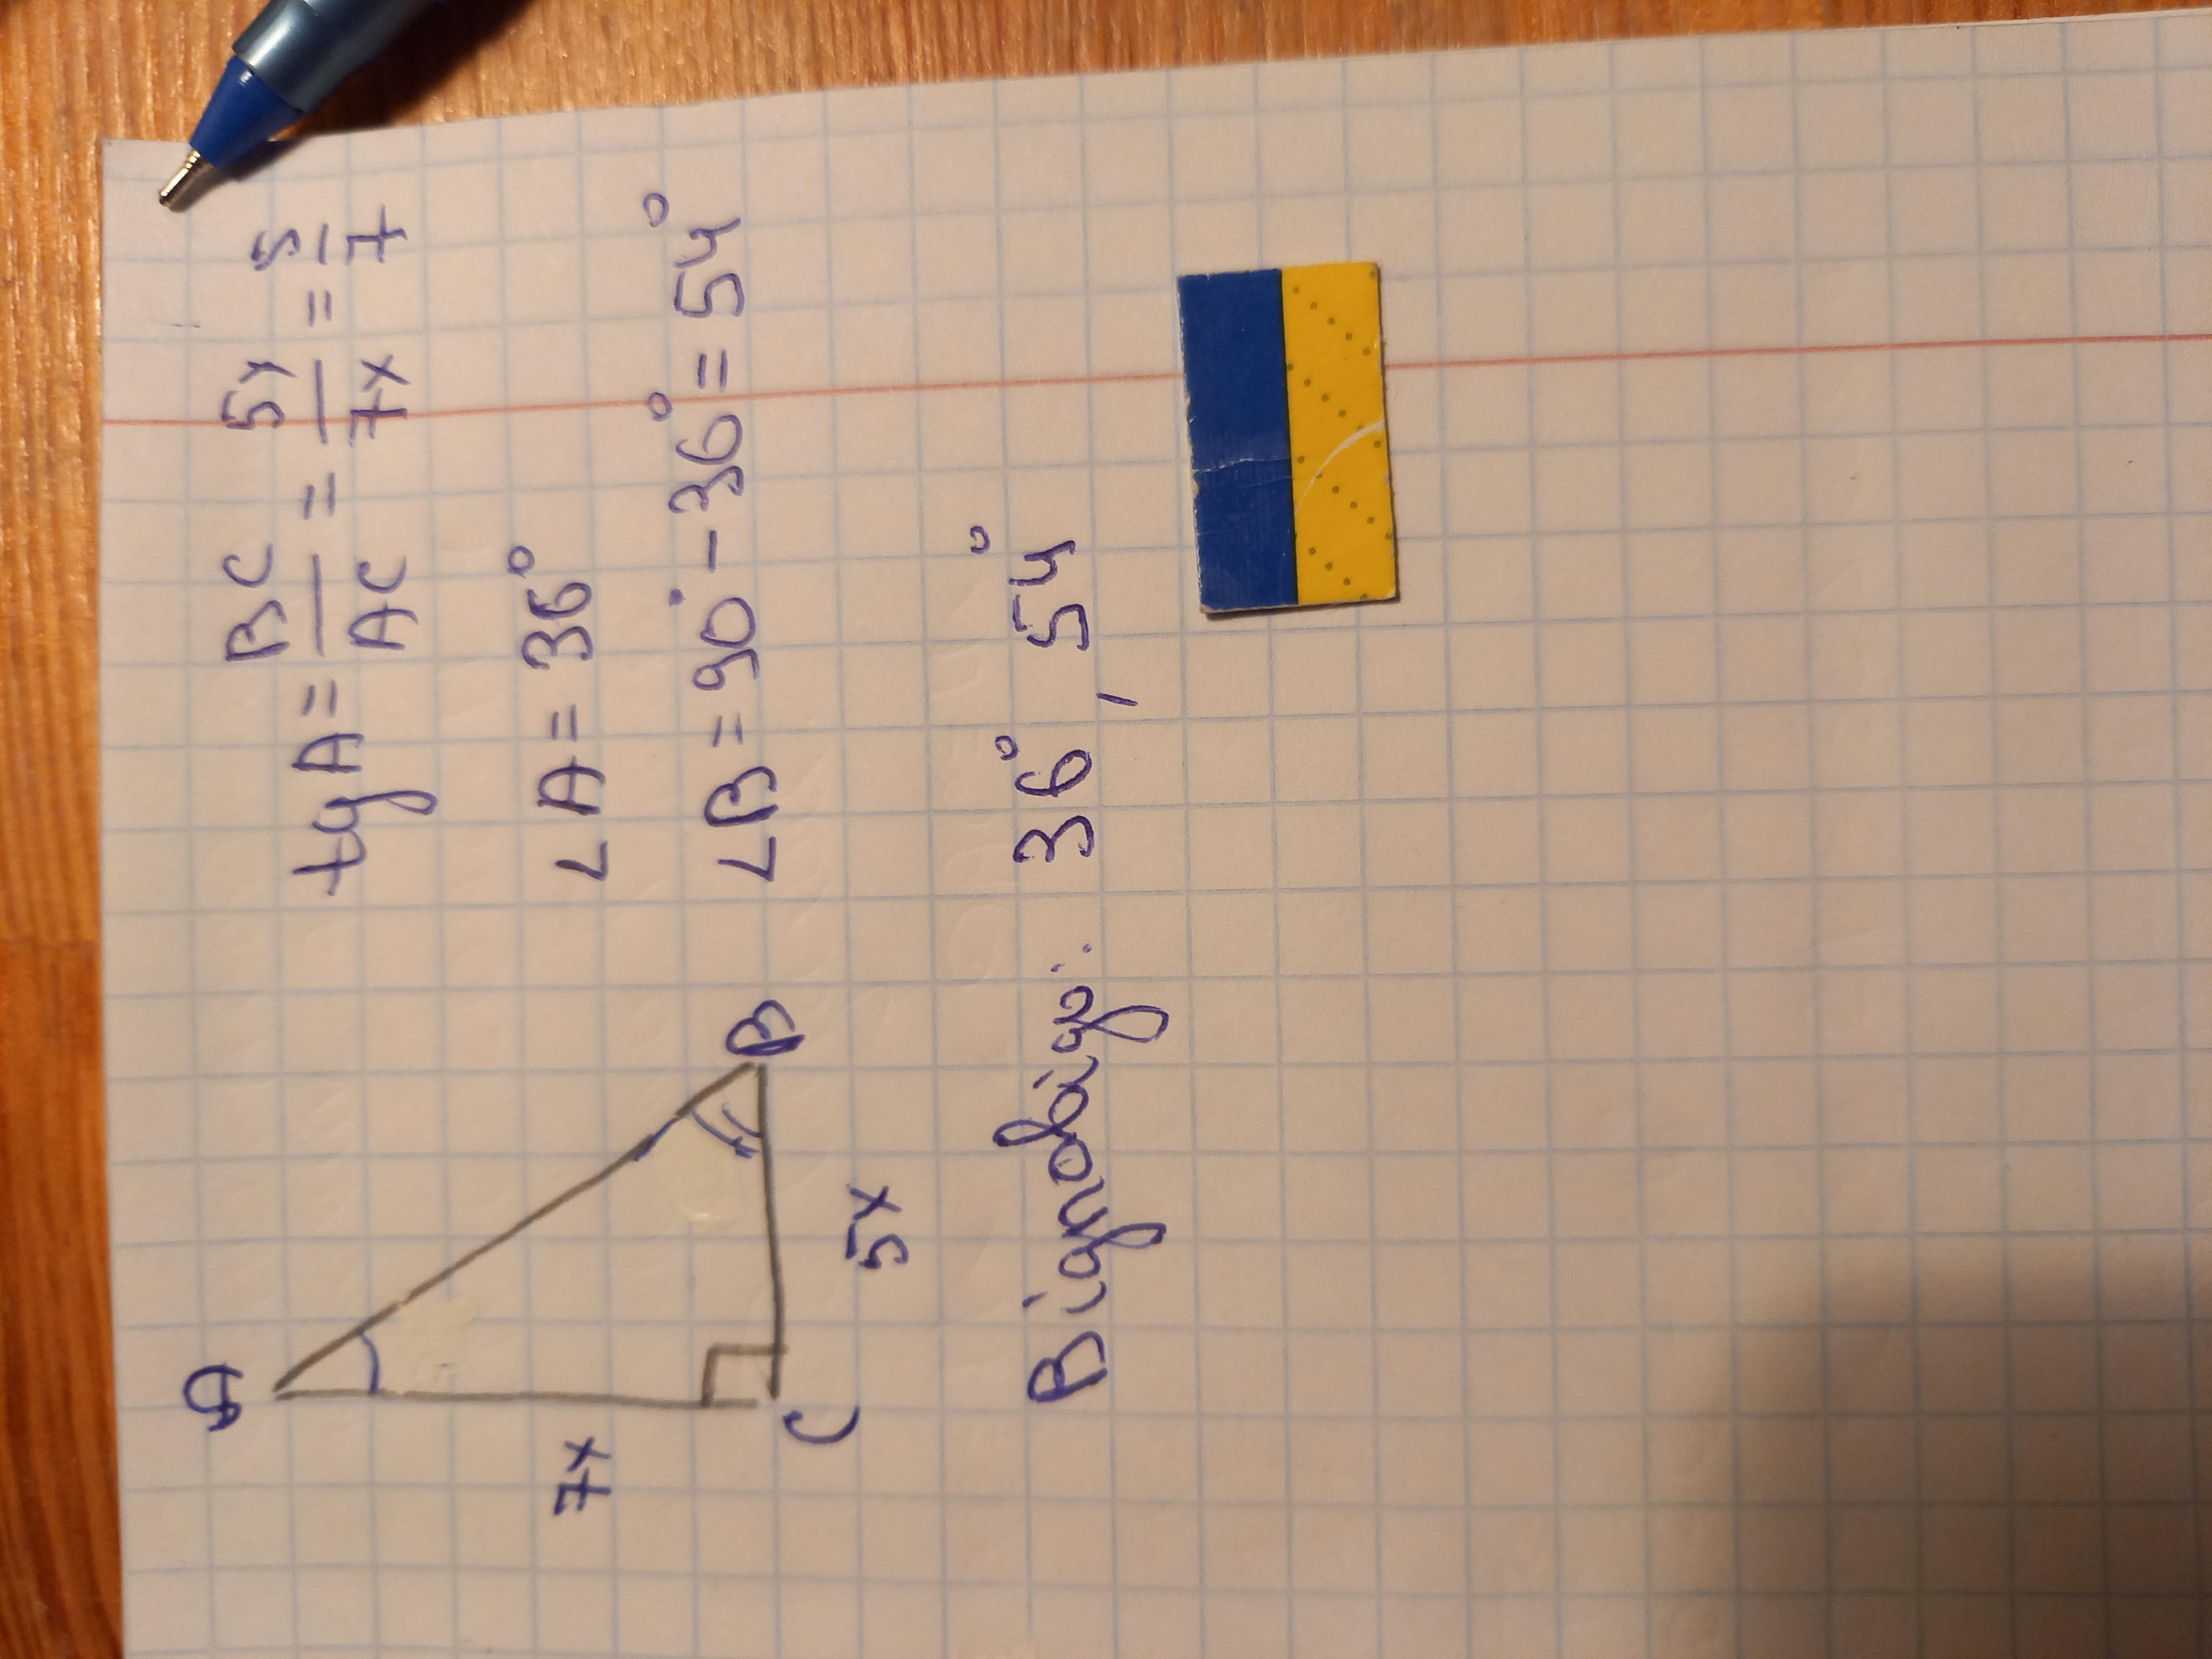 A
7x
C
5x
B
tgA = BC/AC = 5x/7x = 5/7
∠A = 36°
∠B = 90° - 36° = 54°
Відповідь: 36°, 54°